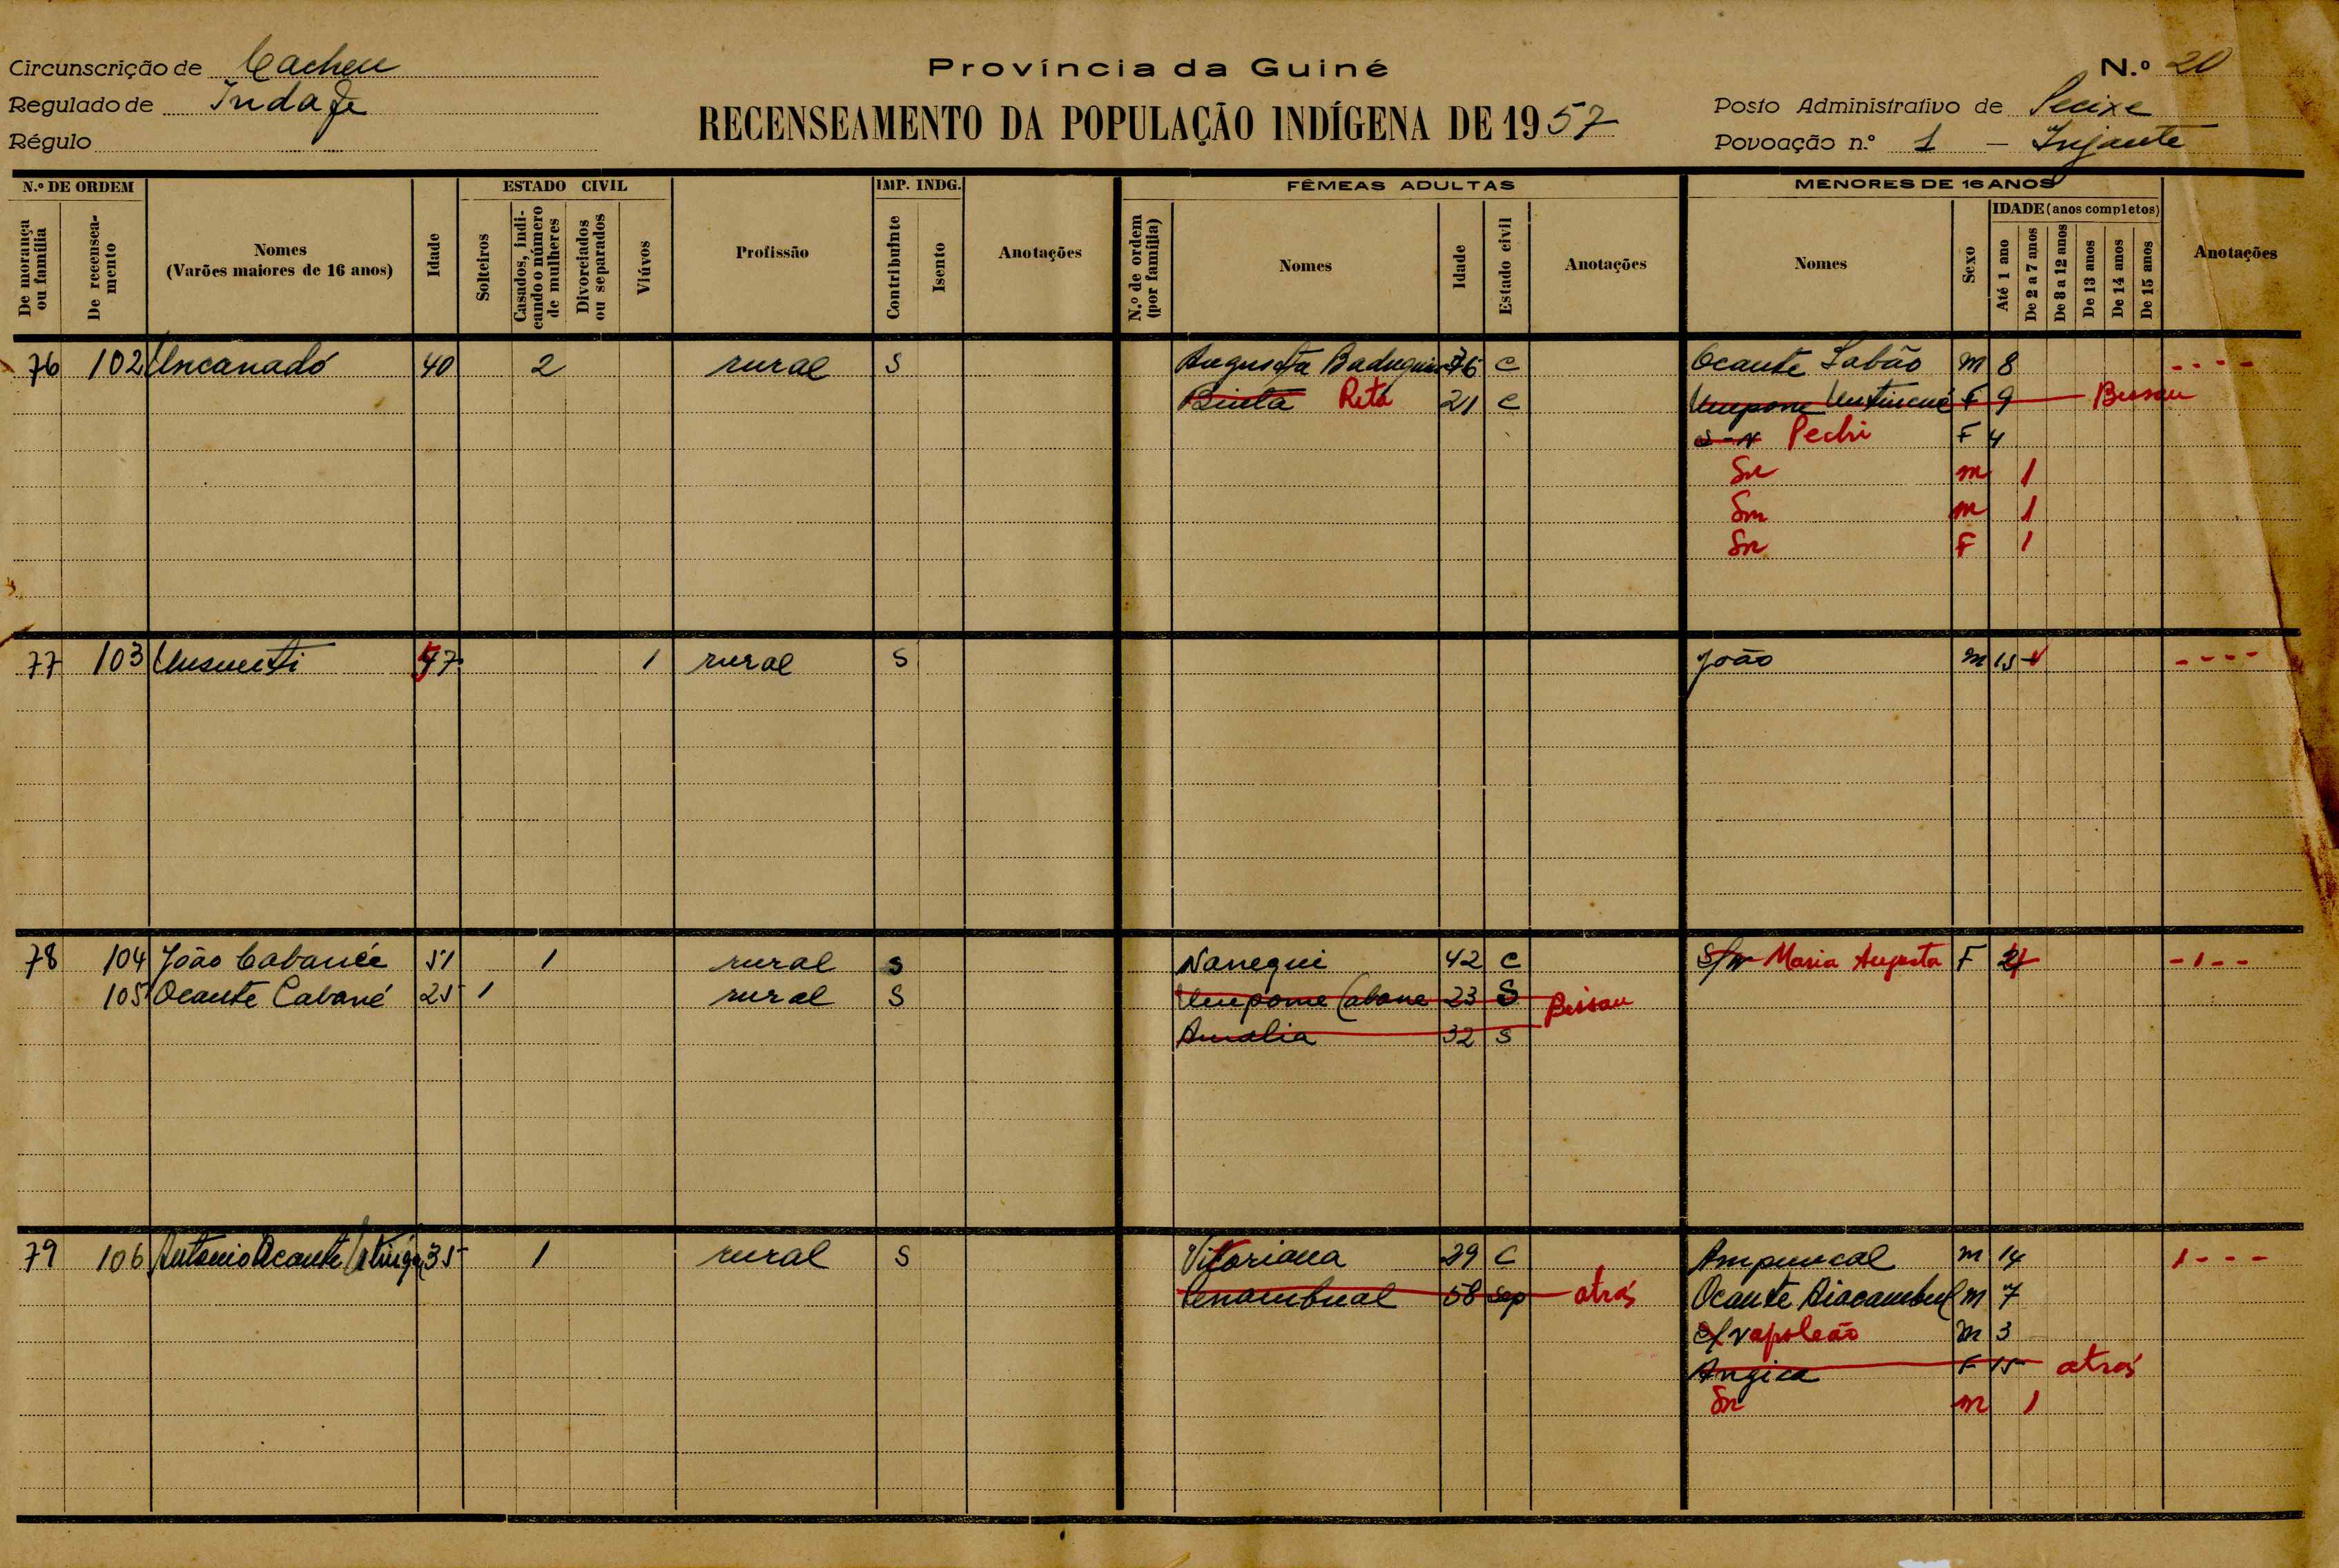 Circunscrição de Cacheu
Regulado de Indafe
Régulo
Província da Guiné
RECENSEAMENTO DA POPULAÇÃO INDÍGENA DE 1957
N.º 20
Posto Administrativo de Pecixe
Povoação n.º 1 - Injante
N.º DE ORDEM
De morança ou família
De recenseamento
Nomes
(Varões maiores de 16 anos)
Idade
ESTADO CIVIL
Solteiros
Casados, indicando o número de mulheres
Divorciados ou separados
Viúvos
Profissão
IMP. INDG.
Contribuinte
Isento
Anotações
FÊMEAS ADULTAS
N.º de ordem (por família)
Nomes
Idade
Estado civil
Anotações
MENORES DE 16 ANOS
Nomes
Sexo
IDADE (anos completos)
Até 1 ano
De 2 a 7 anos
De 8 a 12 anos
De 13 anos
De 14 anos
De 15 anos
Anotações
76 102 Uncanadó 40 2 rural S Augusta C Ocante Sabão M 8 - - - -
Binta Rita 21 C F 9 Bissau
S-N Pechi F 4
Sn m 1
Sn m 1
Sn F 1
77 103 47 1 rural S João M 15 - - - -
78 104 João Cabancé 51 1 rural S Nanequi 42 C S/N Maria Augusta F 2 - 1 - -
105 Ocante Cabané 25 1 rural S Umpome Cabane 23 S Bissau
Amalia 32 S
79 106 Antonio Ocante 35 1 rural S Vitoriana 29 C Ampuncal M 14 1 - - -
58 Sep atrás Ocante M 7
Napoleão M 3
Angica F 15 atrás
Sn m 1